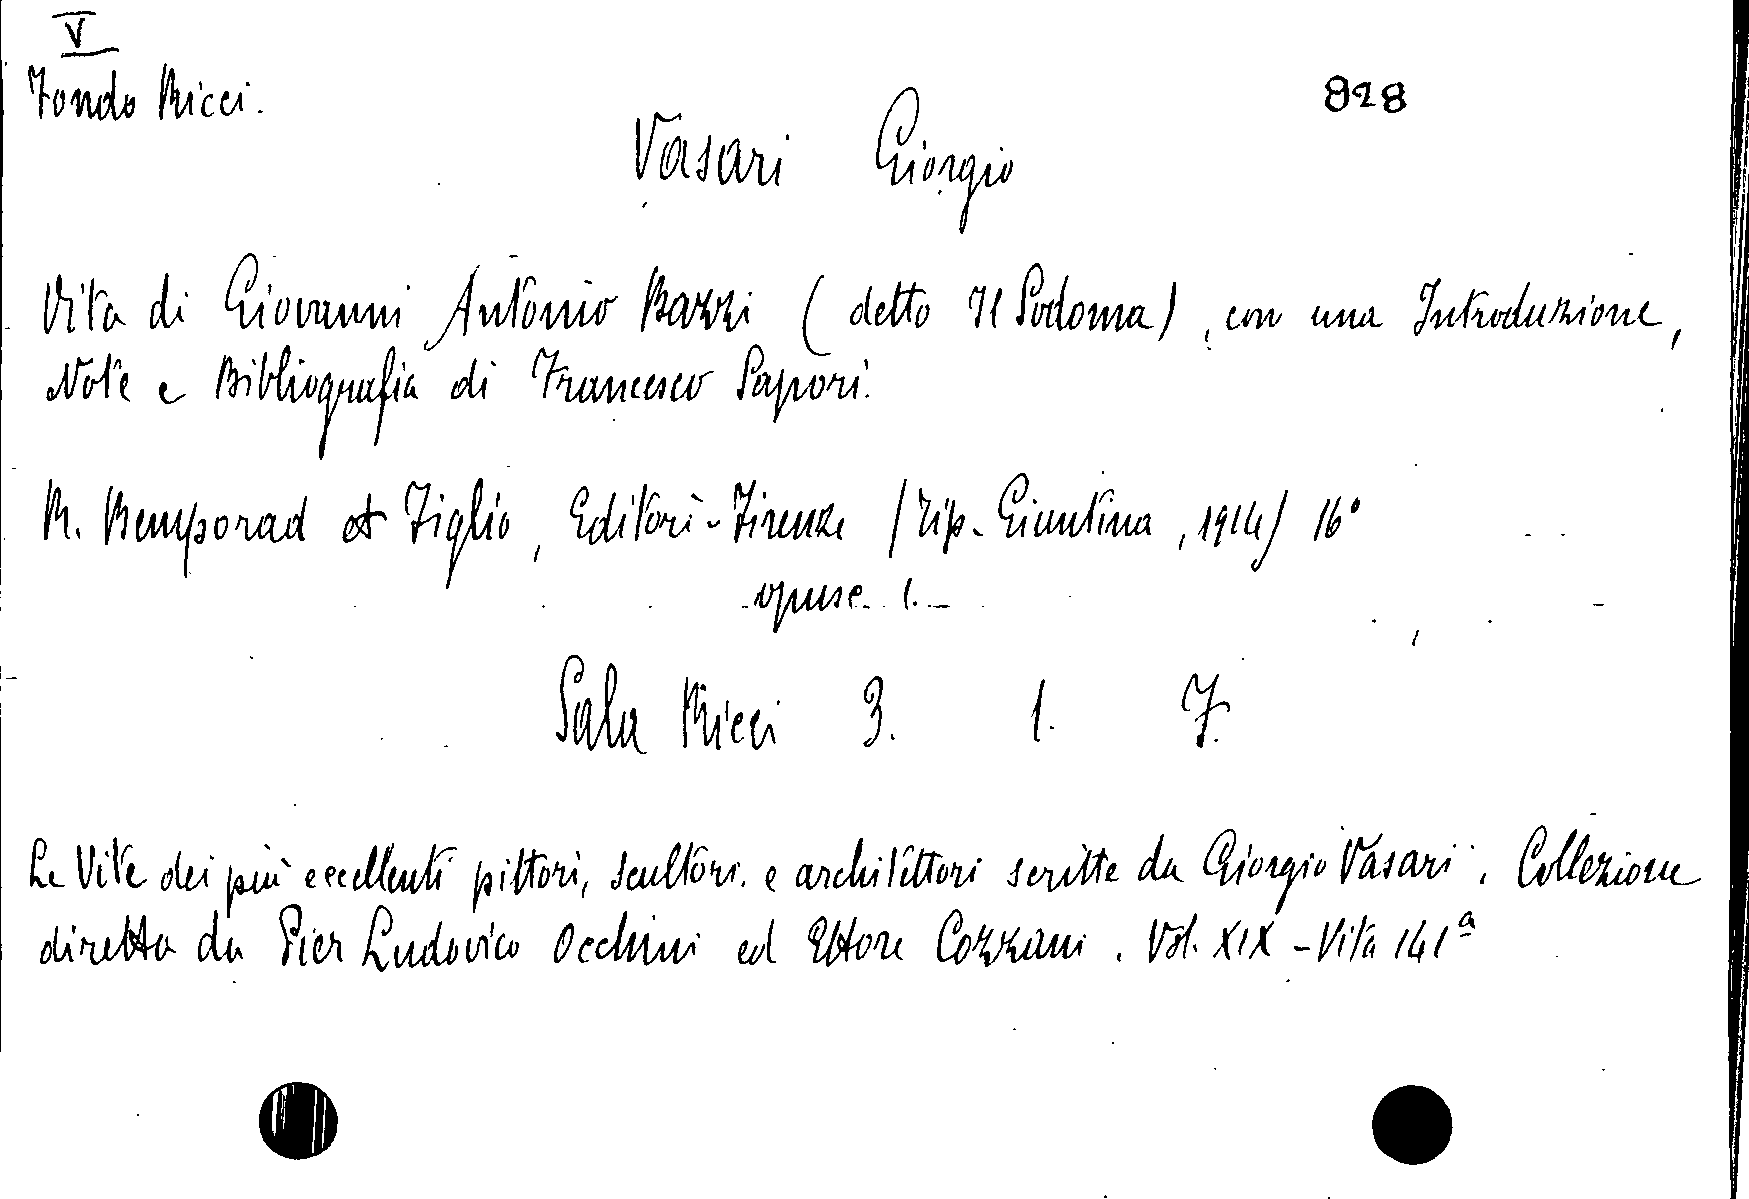 V
Fondo Ricci.
828
Vasari Giorgio
Vita di Giovanni Antonio Bazzi (detto Il Sodoma), con una Introduzione,
Note e Bibliografia di Francesco Sapori.
R. Bemporad et Figlio, Editori - Firenze (Tip. Giuntina, 1914) 16°
opusc. 1.
Sala Ricci 3. 1. 7.
Le Vite dei più eccellenti pittori, scultori e architettori scritte da Giorgio Vasari. Collezione
diretta da Pier Ludovico Occhini ed Ettore Cozzani. Vol. XIX - Vita 141ª